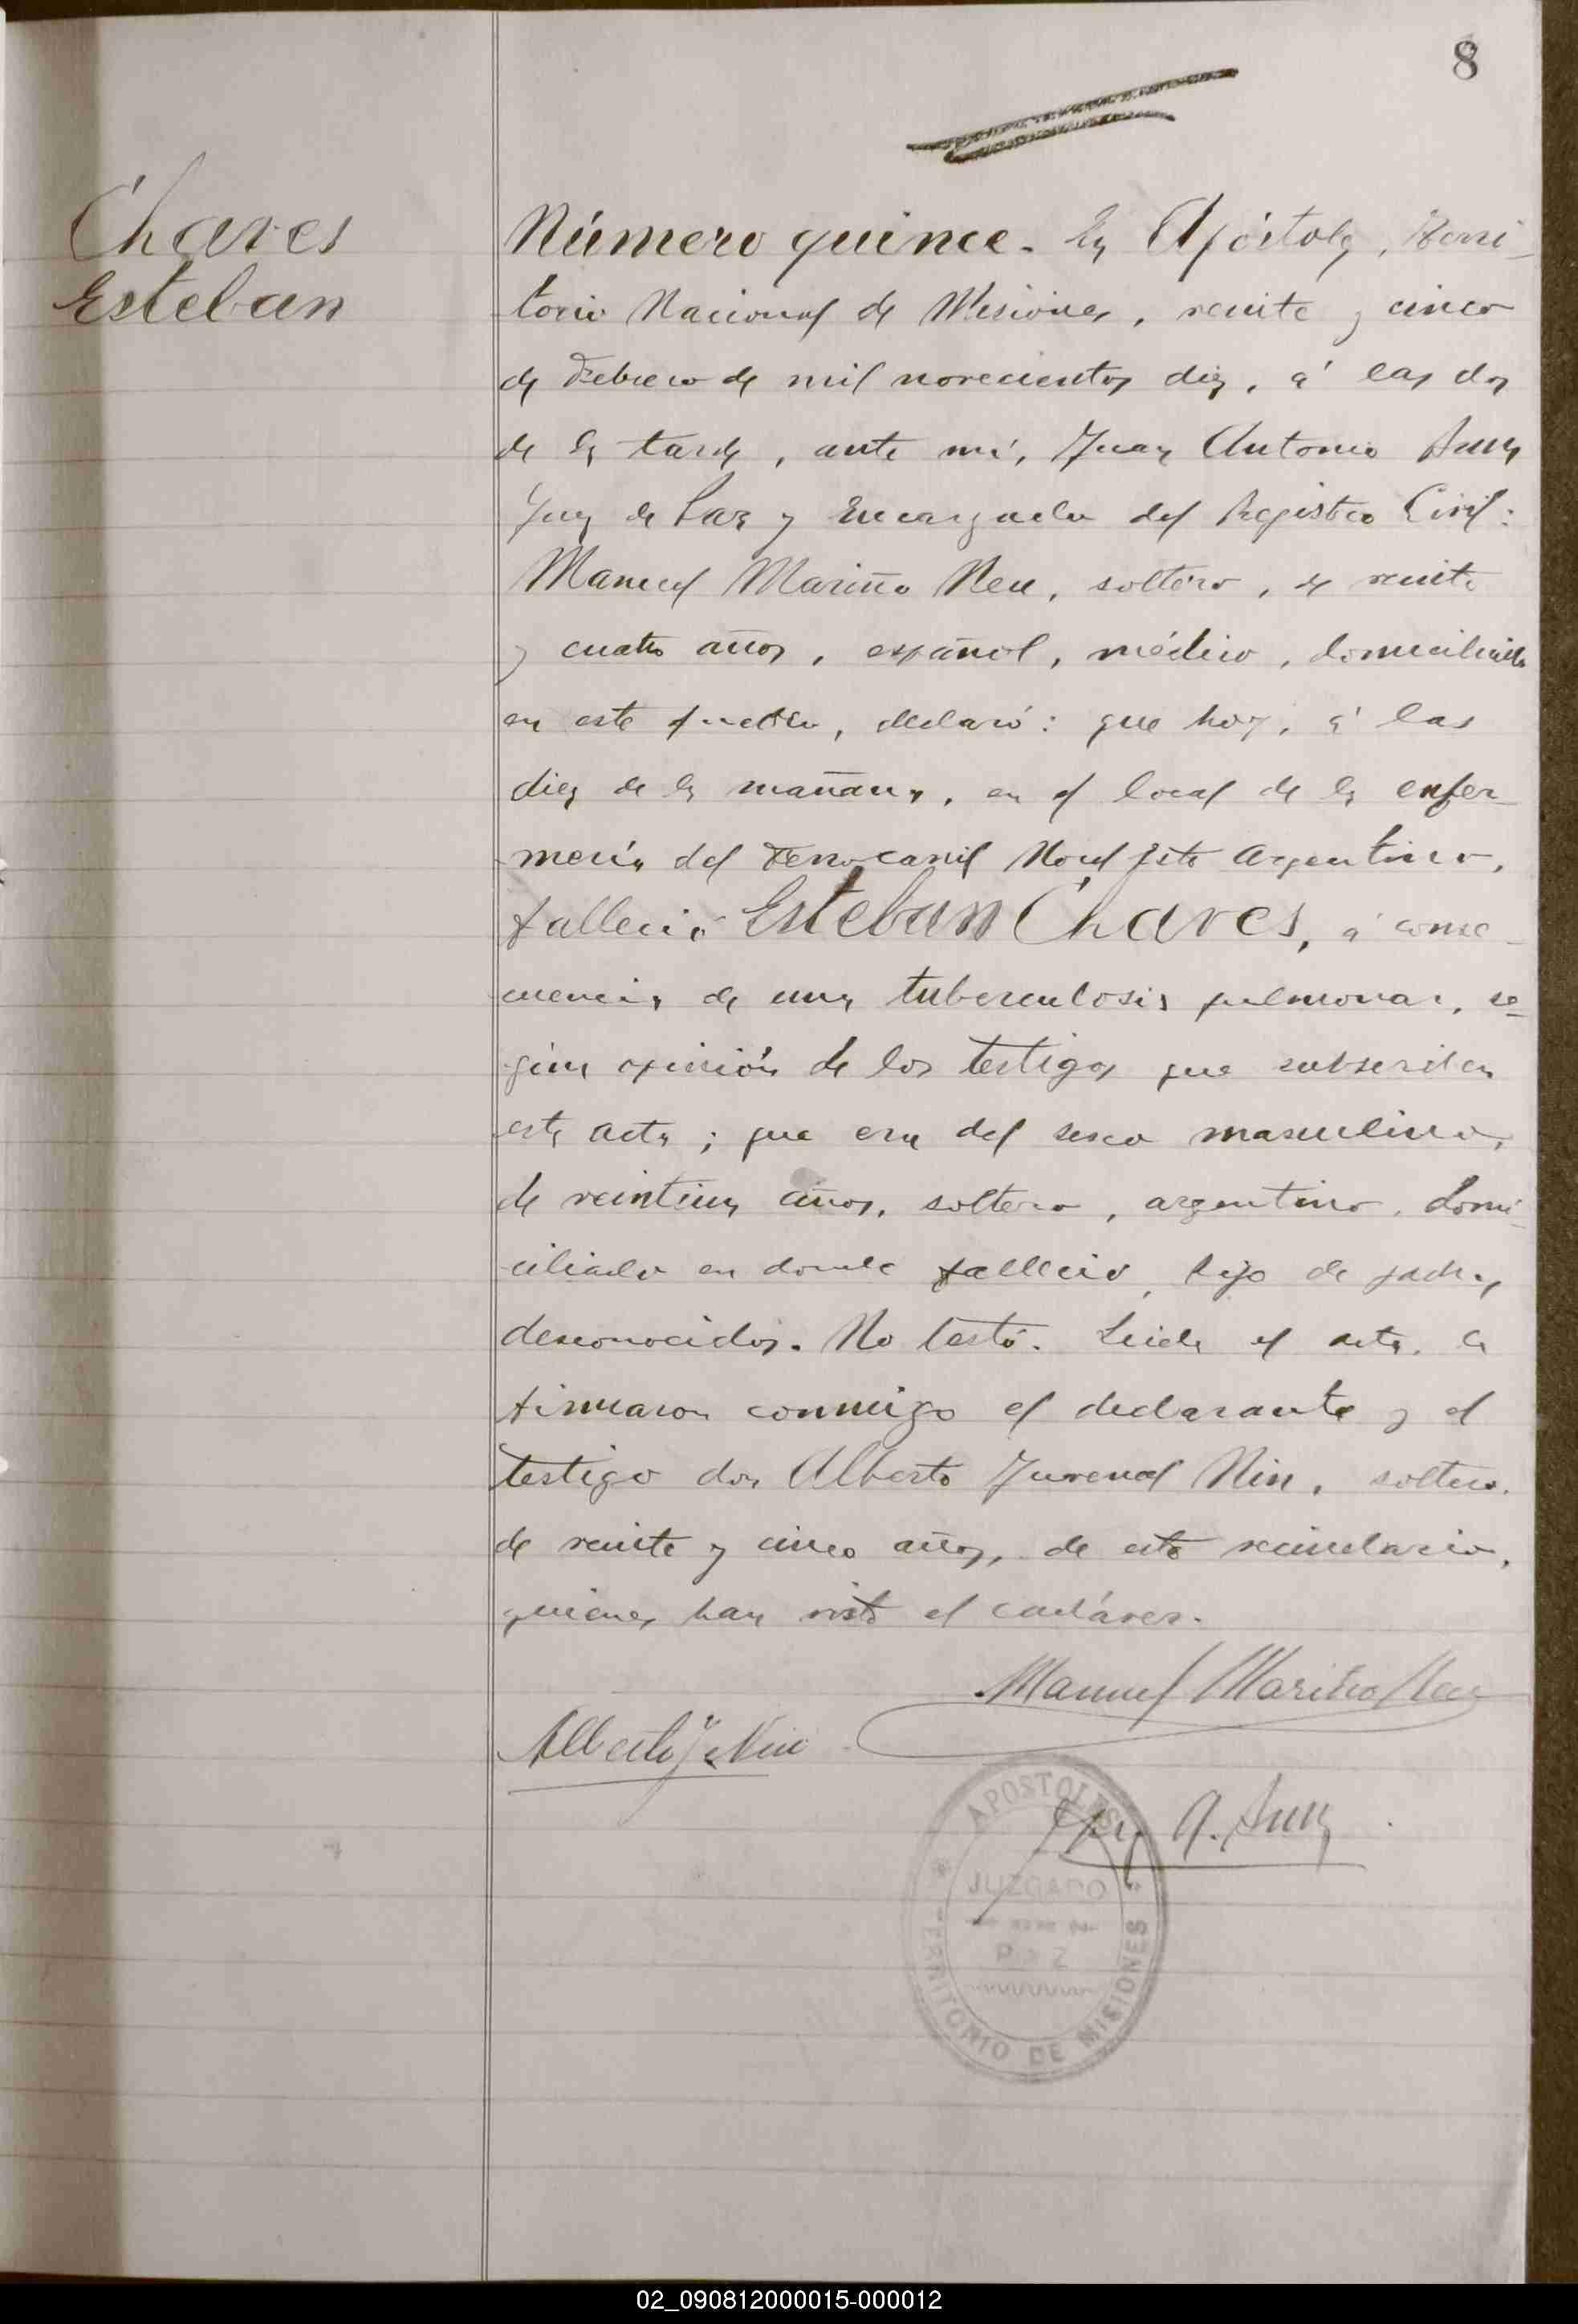 8
Chaves
Esteban
Número quince. En Apóstoles, Terri-
torio Nacional de Misiones, veinte y cinco
de Febrero de mil novecientos diez, á las dos
de la tarde, ante mí, Juan Antonio
Juez de Paz y Encargado del Registro Civil:
Manuel Mariño Neu, soltero, de veinte
y cuatro años, español, médico, domiciliado
en este pueblo, declaró: que hoy, á las
diez de la mañana, en el local de la enfer-
mería del Ferrocarril Nord Este Argentino,
falleció Esteban Chaves, á conse-
cuencia de una tuberculosis pulmonar, se-
gún opinión de los testigos que subscriben
esta acta; que era del sexo masculino,
de veintiun años, soltero, argentino, domi-
ciliado en donde falleció, hijo de padres
desconocidos. No testó. Leida el acta, la
firmaron conmigo el declarante y el
testigo don Alberto Juvenal Nin, soltero,
de veinte y cinco años, de este vecindario,
quienes han visto el cadáver.
Manuel Mariño Neu
Alberto J. Nin
APOSTOLES
A.
JUZGADO
DE
PAZ
TERRITORIO DE MISIONES
02_090812000015-000012